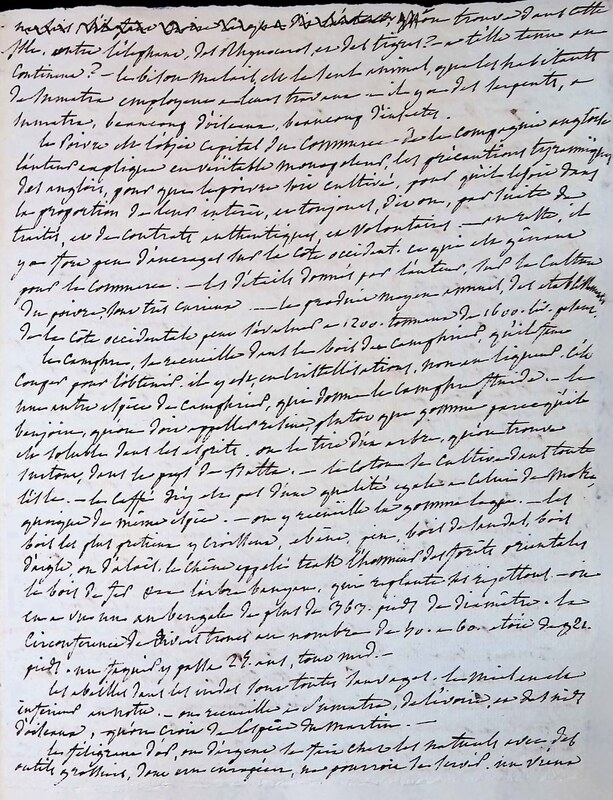 on trouve dans cette
isle, outre l'éléphant, des Rhinoceros, et des tigres? a t'elle tenu au
Continent? – le bison malais, est le seul animal, que les habitants
de Sumatra employent a leurs travaux – il y a des serpents, a
Sumatra, beaucoup d'oiseaux, beaucoup d'insectes.
le poivre est l'objet capital du Commerce de la compagnie angloise
l'auteur explique en véritable monopoleur, les précautions tyranniques
des anglois, pour que le poivre soit cultivé, pour qu'il le soit dans
la proportion de leur intérêt, et toujours, dit on, par suite de
traités, et de contrats authentiques, et volontaires – il
y a fort peu d'ancrages sur la côte occident. ce qui est gênant
pour le Commerce. – les détails donnés par l'auteur, sur la Culture
du poivre, sont très curieux – le produit moyen annuel, des établissements
de la Côte occidentale peut s'évaluer a 1200. tonneaux de 1600. liv. pesant.
le camphre, se recueille dans le bois du Camphrier, qu'il faut
Couper pour l'obtenir. il y est, en Cristallisations, non en liqueur. C'est
une autre espèce de Camphrier, que donne le Camphre fluide. – le
benjoin, qu'on doit appeller résine plutot que gomme parce qu'il
est soluble dans les esprits. on le tire d'un arbre, qu'on trouve
surtout, dans le pays de Batta. – le Coton se Cultive dans toute
l'isle. – le Caffé n'y est pas d'une qualité egale a Celui de Moka
quoique de même espèce. – on y recueille la gomme laque. – les
bois les plus précieux y Croissent, ebene, pin, bois de Sandal, bois
d'aigle ou d'aloès. le Chêne appellé teak l'honneur des forêts orientales
le bois de fer l'arbre banyan, qui replante ses rejettons. – on
en a vu un au bengale de plus de 363. pieds de diamètre. la
Circonference de divers troncs au nombre de 50. a 60. etoit de 921.
pieds. un faquir y passa 25. ans, tout nud. –
les abeilles dans les indes sont toutes sauvages. le miel en est
inférieur au notre – on recueille a Sumatra, de l'ivoire, et des nids
d'oiseaux, qu'on croit de l'espèce du Martin. –
le filigrane d'or, ou d'argent se fait chez les naturels avec des
outils grossiers, dont un européen, ne pourroit se servir. un vieux